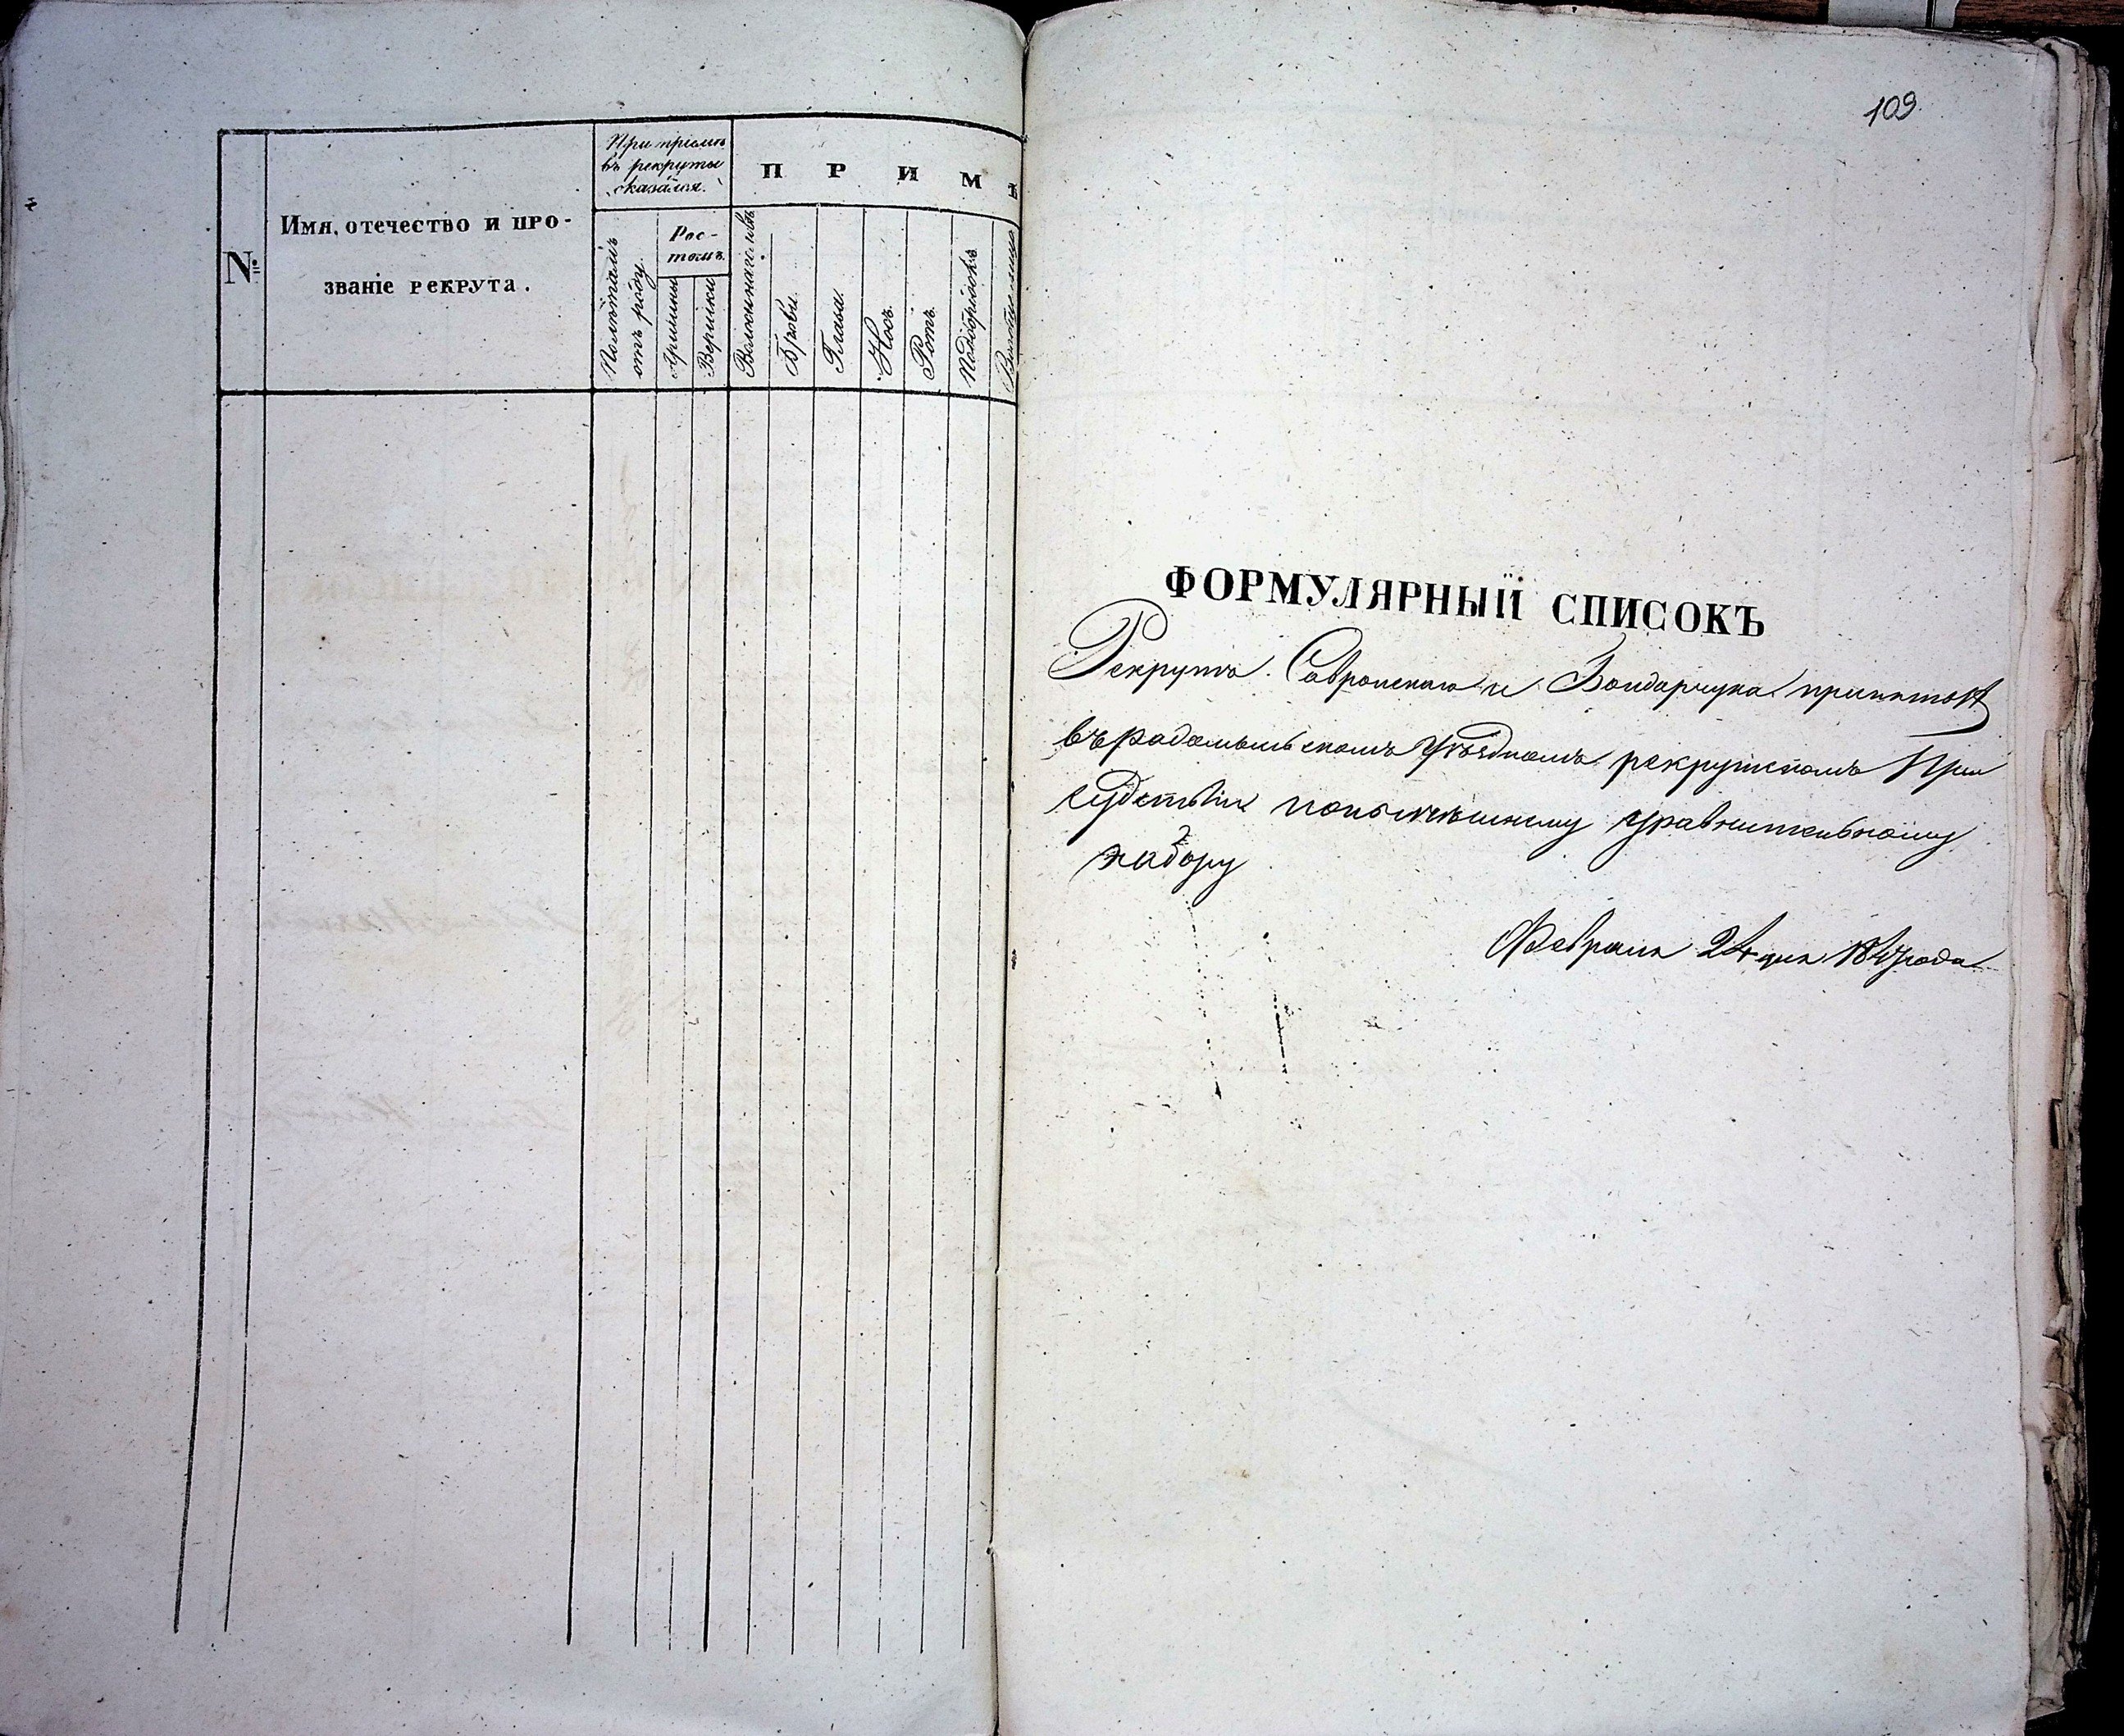 №
Имя, отечество и про-
званіе рекрута.
При пріемѣ
въ рекруты
сказался.
Полѣтамъ
отъ роду
Рос-
томъ.
Аршины
Вершки
П Р И М Ѣ
Брови.
Глаза.
Носъ.
Ротъ.
Подбородокъ
109.
ФОРМУЛЯРНЫЙ СПИСОКЪ
Рекрутъ. и Бондарчука принятыхъ
въ радомысльскомъ Уѣздномъ рекрутскомъ При
судствіи уравнительному
набору
Февраля 24 дня года